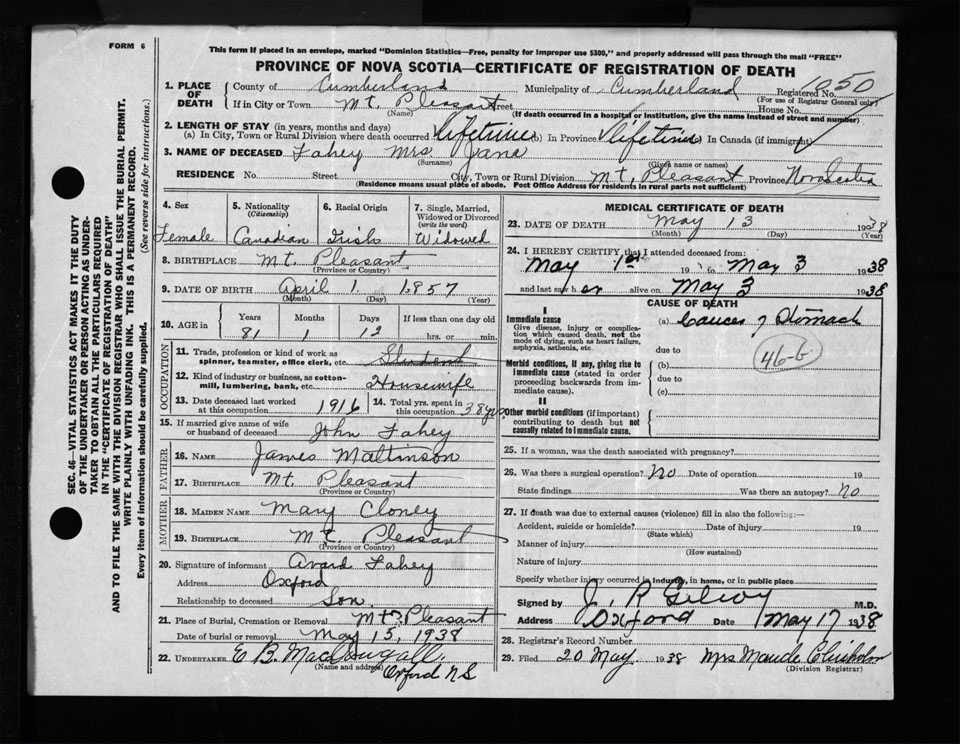 FORM 6
This form if placed in an envelope, marked "Dominion Statistics—Free, penalty for improper use $300," and properly addressed will pass through the mail "FREE"
PROVINCE OF NOVA SCOTIA—CERTIFICATE OF REGISTRATION OF DEATH
1. PLACE OF DEATH
County of Cumberland Municipality of Cumberland Registered No. 1050
(For use of Registrar General only)
If in City or Town Mt. Pleasant Street House No.
(Name) (If death occurred in a hospital or institution, give the name instead of street and number)
2. LENGTH OF STAY (in years, months and days)
(a) In City, Town or Rural Division where death occurred lifetime (b) In Province lifetime In Canada (if immigrant)
3. NAME OF DECEASED Fahey Mrs. Jane
(Surname) (Given name or names)
RESIDENCE No. Street City, Town or Rural Division Mt. Pleasant Province Nova Scotia
(Residence means usual place of abode. Post Office Address for residents in rural parts not sufficient)
4. Sex
Female
5. Nationality (Citizenship)
Canadian
6. Racial Origin
Irish
7. Single, Married, Widowed or Divorced (write the word)
Widowed
8. BIRTHPLACE Mt. Pleasant
(Province or Country)
9. DATE OF BIRTH April 1 1857
(Month) (Day) (Year)
10. AGE in Years Months Days If less than one day old
81 1 12 hrs. or min.
OCCUPATION
11. Trade, profession or kind of work as spinner, teamster, office clerk, etc.
12. Kind of industry or business, as cotton-mill, lumbering, bank, etc. Housewife
13. Date deceased last worked at this occupation 1916
14. Total yrs. spent in this occupation 38 yrs
15. If married give name of wife or husband of deceased John Fahey
FATHER
16. NAME James Mattinson
17. BIRTHPLACE Mt. Pleasant
(Province or Country)
MOTHER
18. MAIDEN NAME Mary Cloney
19. BIRTHPLACE Mt. Pleasant
(Province or Country)
20. Signature of informant Avard Fahey
Address Oxford
Relationship to deceased Son
21. Place of Burial, Cremation or Removal Mt. Pleasant
Date of burial or removal May 15, 1938
22. UNDERTAKER E B. MacDougall
(Name and address) Oxford NS
MEDICAL CERTIFICATE OF DEATH
23. DATE OF DEATH May 13 1938
(Month) (Day) (Year)
24. I HEREBY CERTIFY that I attended deceased from:
May 1st 19 to May 3 1938
and last saw her alive on May 3 1938
CAUSE OF DEATH
I
Immediate cause
Give disease, injury or complication which caused death, not the mode of dying, such as heart failure, asphyxia, asthenia, etc.
(a) Cancer of Stomach
due to
46-b.
Morbid conditions, if any, giving rise to immediate cause (stated in order proceeding backwards from immediate cause).
(b)
due to
(c)
II
Other morbid conditions (if important) contributing to death but not causally related to immediate cause.
25. If a woman, was the death associated with pregnancy?
26. Was there a surgical operation? No Date of operation 19
State findings Was there an autopsy? no
27. If death was due to external causes (violence) fill in also the following:—
Accident, suicide or homicide? Date of injury 19
(State which)
Manner of injury
(How sustained)
Nature of injury
Specify whether injury occurred in industry, in home, or in public place
Signed by J. R Gilroy M.D.
Address Oxford Date May 17 1938
28. Registrar's Record Number
29. Filed 20 May 1938 Mrs Maude Chisholm
(Division Registrar)
SEC. 46—VITAL STATISTICS ACT MAKES IT THE DUTY
OF THE UNDERTAKER OR PERSON ACTING AS UNDER-
TAKER TO OBTAIN ALL THE PARTICULARS REQUIRED
IN THE "CERTIFICATE OF REGISTRATION OF DEATH"
AND TO FILE THE SAME WITH THE DIVISION REGISTRAR WHO SHALL ISSUE THE BURIAL PERMIT.
WRITE PLAINLY WITH UNFADING INK. THIS IS A PERMANENT RECORD.
Every item of information should be carefully supplied. (See reverse side for instructions.)